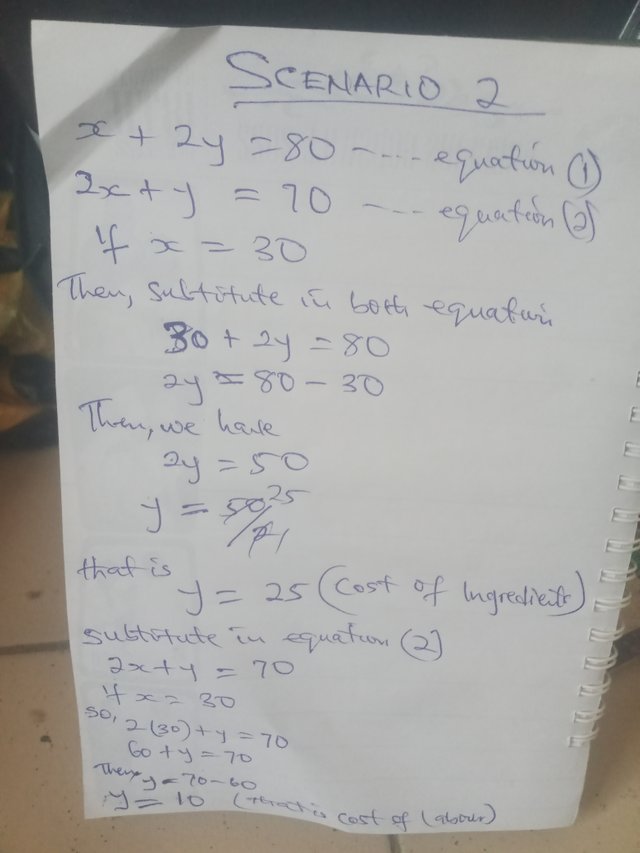 SCENARIO 2
x + 2y = 80 ---- equation (1)
2x + y = 70 ---- equation (2)
If x = 30
Then, substitute in both equation
30 + 2y = 80
2y = 80 - 30
Then, we have
2y = 50
y = 50/2 25 1
that is
y = 25 (Cost of Ingredients)
substitute in equation (2)
2x + y = 70
If x = 30
so, 2(30) + y = 70
60 + y = 70
Then y = 70 - 60
y = 10 (that is cost of labour)